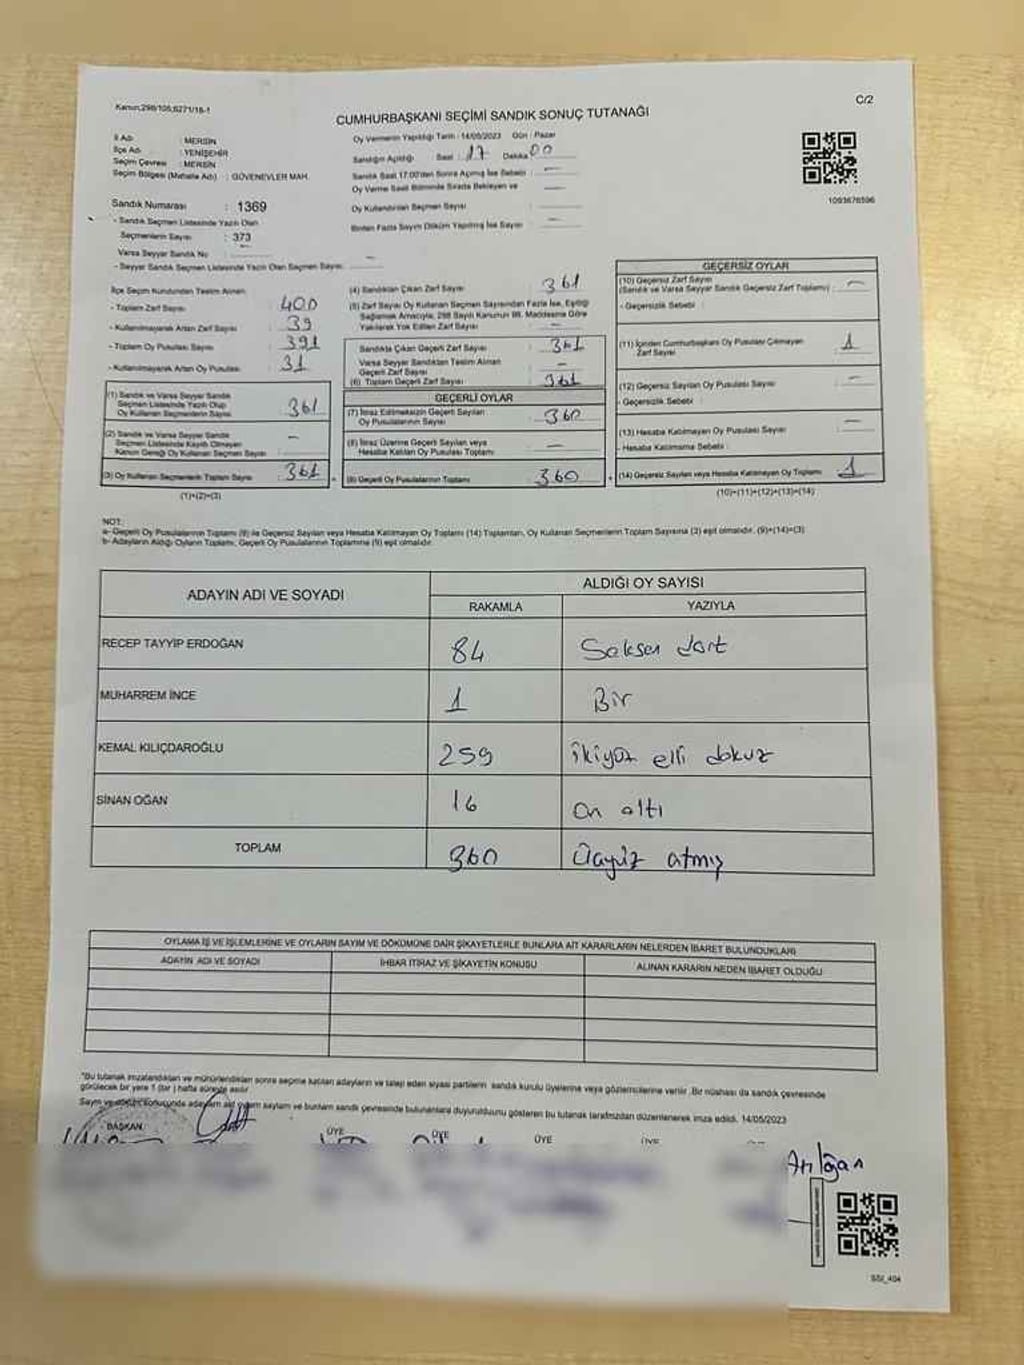 Kanun;298/105;6271/16-1
C/2
CUMHURBAŞKANI SEÇİMİ SANDIK SONUÇ TUTANAĞI
İl Adı : MERSİN
İlçe Adı : YENİŞEHİR
Seçim Çevresi : MERSİN
Seçim Bölgesi (Mahalle Adı) : GÜVENEVLER MAH.
Oy Vermenin Yapıldığı Tarih : 14/05/2023 Gün : Pazar
Sandığın Açıldığı Saat : 17 Dakika 00
Sandık Saat 17:00'den Sonra Açılmış İse Sebebi : —
Oy Verme Saati Bitiminde Sırada Bekleyen ve —
Oy Kullandırılan Seçmen Sayısı
Birden Fazla Sayım Döküm Yapılmış İse Sayısı : —
1093676596
Sandık Numarası : 1369
- Sandık Seçmen Listesinde Yazılı Olan
Seçmenlerin Sayısı : 373
Varsa Seyyar Sandık No : —
- Seyyar Sandık Seçmen Listesinde Yazılı Olan Seçmen Sayısı: —
İlçe Seçim Kurulundan Teslim Alınan
- Toplam Zarf Sayısı : 400
- Kullanılmayarak Artan Zarf Sayısı : 39
- Toplam Oy Pusulası Sayısı : 391
- Kullanılmayarak Artan Oy Pusulası : 31
(1) Sandık ve Varsa Seyyar Sandık
Seçmen Listesinde Yazılı Olup
Oy Kullanan Seçmenlerin Sayısı : 361
(2) Sandık ve Varsa Seyyar Sandık
Seçmen Listesinde Kayıtlı Olmayan
Kanun Gereği Oy Kullanan Seçmen Sayısı : —
(3) Oy Kullanan Seçmenlerin Toplam Sayısı : 361
(1)+(2)=(3)
(4) Sandıktan Çıkan Zarf Sayısı : 361
(5) Zarf Sayısı Oy Kullanan Seçmen Sayısından Fazla İse, Eşitliği
Sağlamak Amacıyla, 298 Sayılı Kanunun 98. Maddesine Göre
Yakılarak Yok Edilen Zarf Sayısı : —
Sandıkta Çıkan Geçerli Zarf Sayısı : 361
Varsa Seyyar Sandıktan Teslim Alınan
Geçerli Zarf Sayısı : —
(6) Toplam Geçerli Zarf Sayısı : 361
GEÇERLİ OYLAR
(7) İtiraz Edilmeksizin Geçerli Sayılan
Oy Pusulalarının Sayısı : 360
(8) İtiraz Üzerine Geçerli Sayılan veya
Hesaba Katılan Oy Pusulası Toplamı : —
(9) Geçerli Oy Pusulalarının Toplamı : 360
GEÇERSİZ OYLAR
(10) Geçersiz Zarf Sayısı
(Sandık ve Varsa Seyyar Sandık Geçersiz Zarf Toplamı) : —
- Geçersizlik Sebebi :
(11) İçinden Cumhurbaşkanı Oy Pusulası Çıkmayan
Zarf Sayısı : 1
(12) Geçersiz Sayılan Oy Pusulası Sayısı : —
- Geçersizlik Sebebi :
(13) Hesaba Katılmayan Oy Pusulası Sayısı : —
- Hesaba Katılmama Sebebi :
(14) Geçersiz Sayılan veya Hesaba Katılmayan Oy Toplamı : 1
(10)+(11)+(12)+(13)=(14)
NOT:
a- Geçerli Oy Pusulalarının Toplamı (9) ile Geçersiz Sayılan veya Hesaba Katılmayan Oy Toplamı (14) Toplamları, Oy Kullanan Seçmenlerin Toplam Sayısına (3) eşit olmalıdır. (9)+(14)=(3)
b- Adayların Aldığı Oyların Toplamı, Geçerli Oy Pusulalarının Toplamına (9) eşit olmalıdır.
ADAYIN ADI VE SOYADI
ALDIĞI OY SAYISI
RAKAMLA YAZIYLA
RECEP TAYYİP ERDOĞAN 84 Seksen dört
MUHARREM İNCE 1 Bir
KEMAL KILIÇDAROĞLU 259 ikiyüz elli dokuz
SİNAN OĞAN 16 on altı
TOPLAM 360 Üçyüz atmış
OYLAMA İŞ VE İŞLEMLERİNE VE OYLARIN SAYIM VE DÖKÜMÜNE DAİR ŞİKAYETLERLE BUNLARA AİT KARARLARIN NELERDEN İBARET BULUNDUKLARI
ADAYIN ADI VE SOYADI İHBAR İTİRAZ VE ŞİKAYETİN KONUSU ALINAN KARARIN NEDEN İBARET OLDUĞU
"Bu tutanak imzalandıktan ve mühürlendikten sonra seçime katılan adayların ve talep eden siyasi partilerin sandık kurulu üyelerine veya gözlemcilerine verilir. Bir nüshası da sandık çevresinde
görülecek bir yere 1 (bir) hafta süreyle asılır.
BAŞKAN
ÜYE ÜYE ÜYE ÜYE
SSI_404